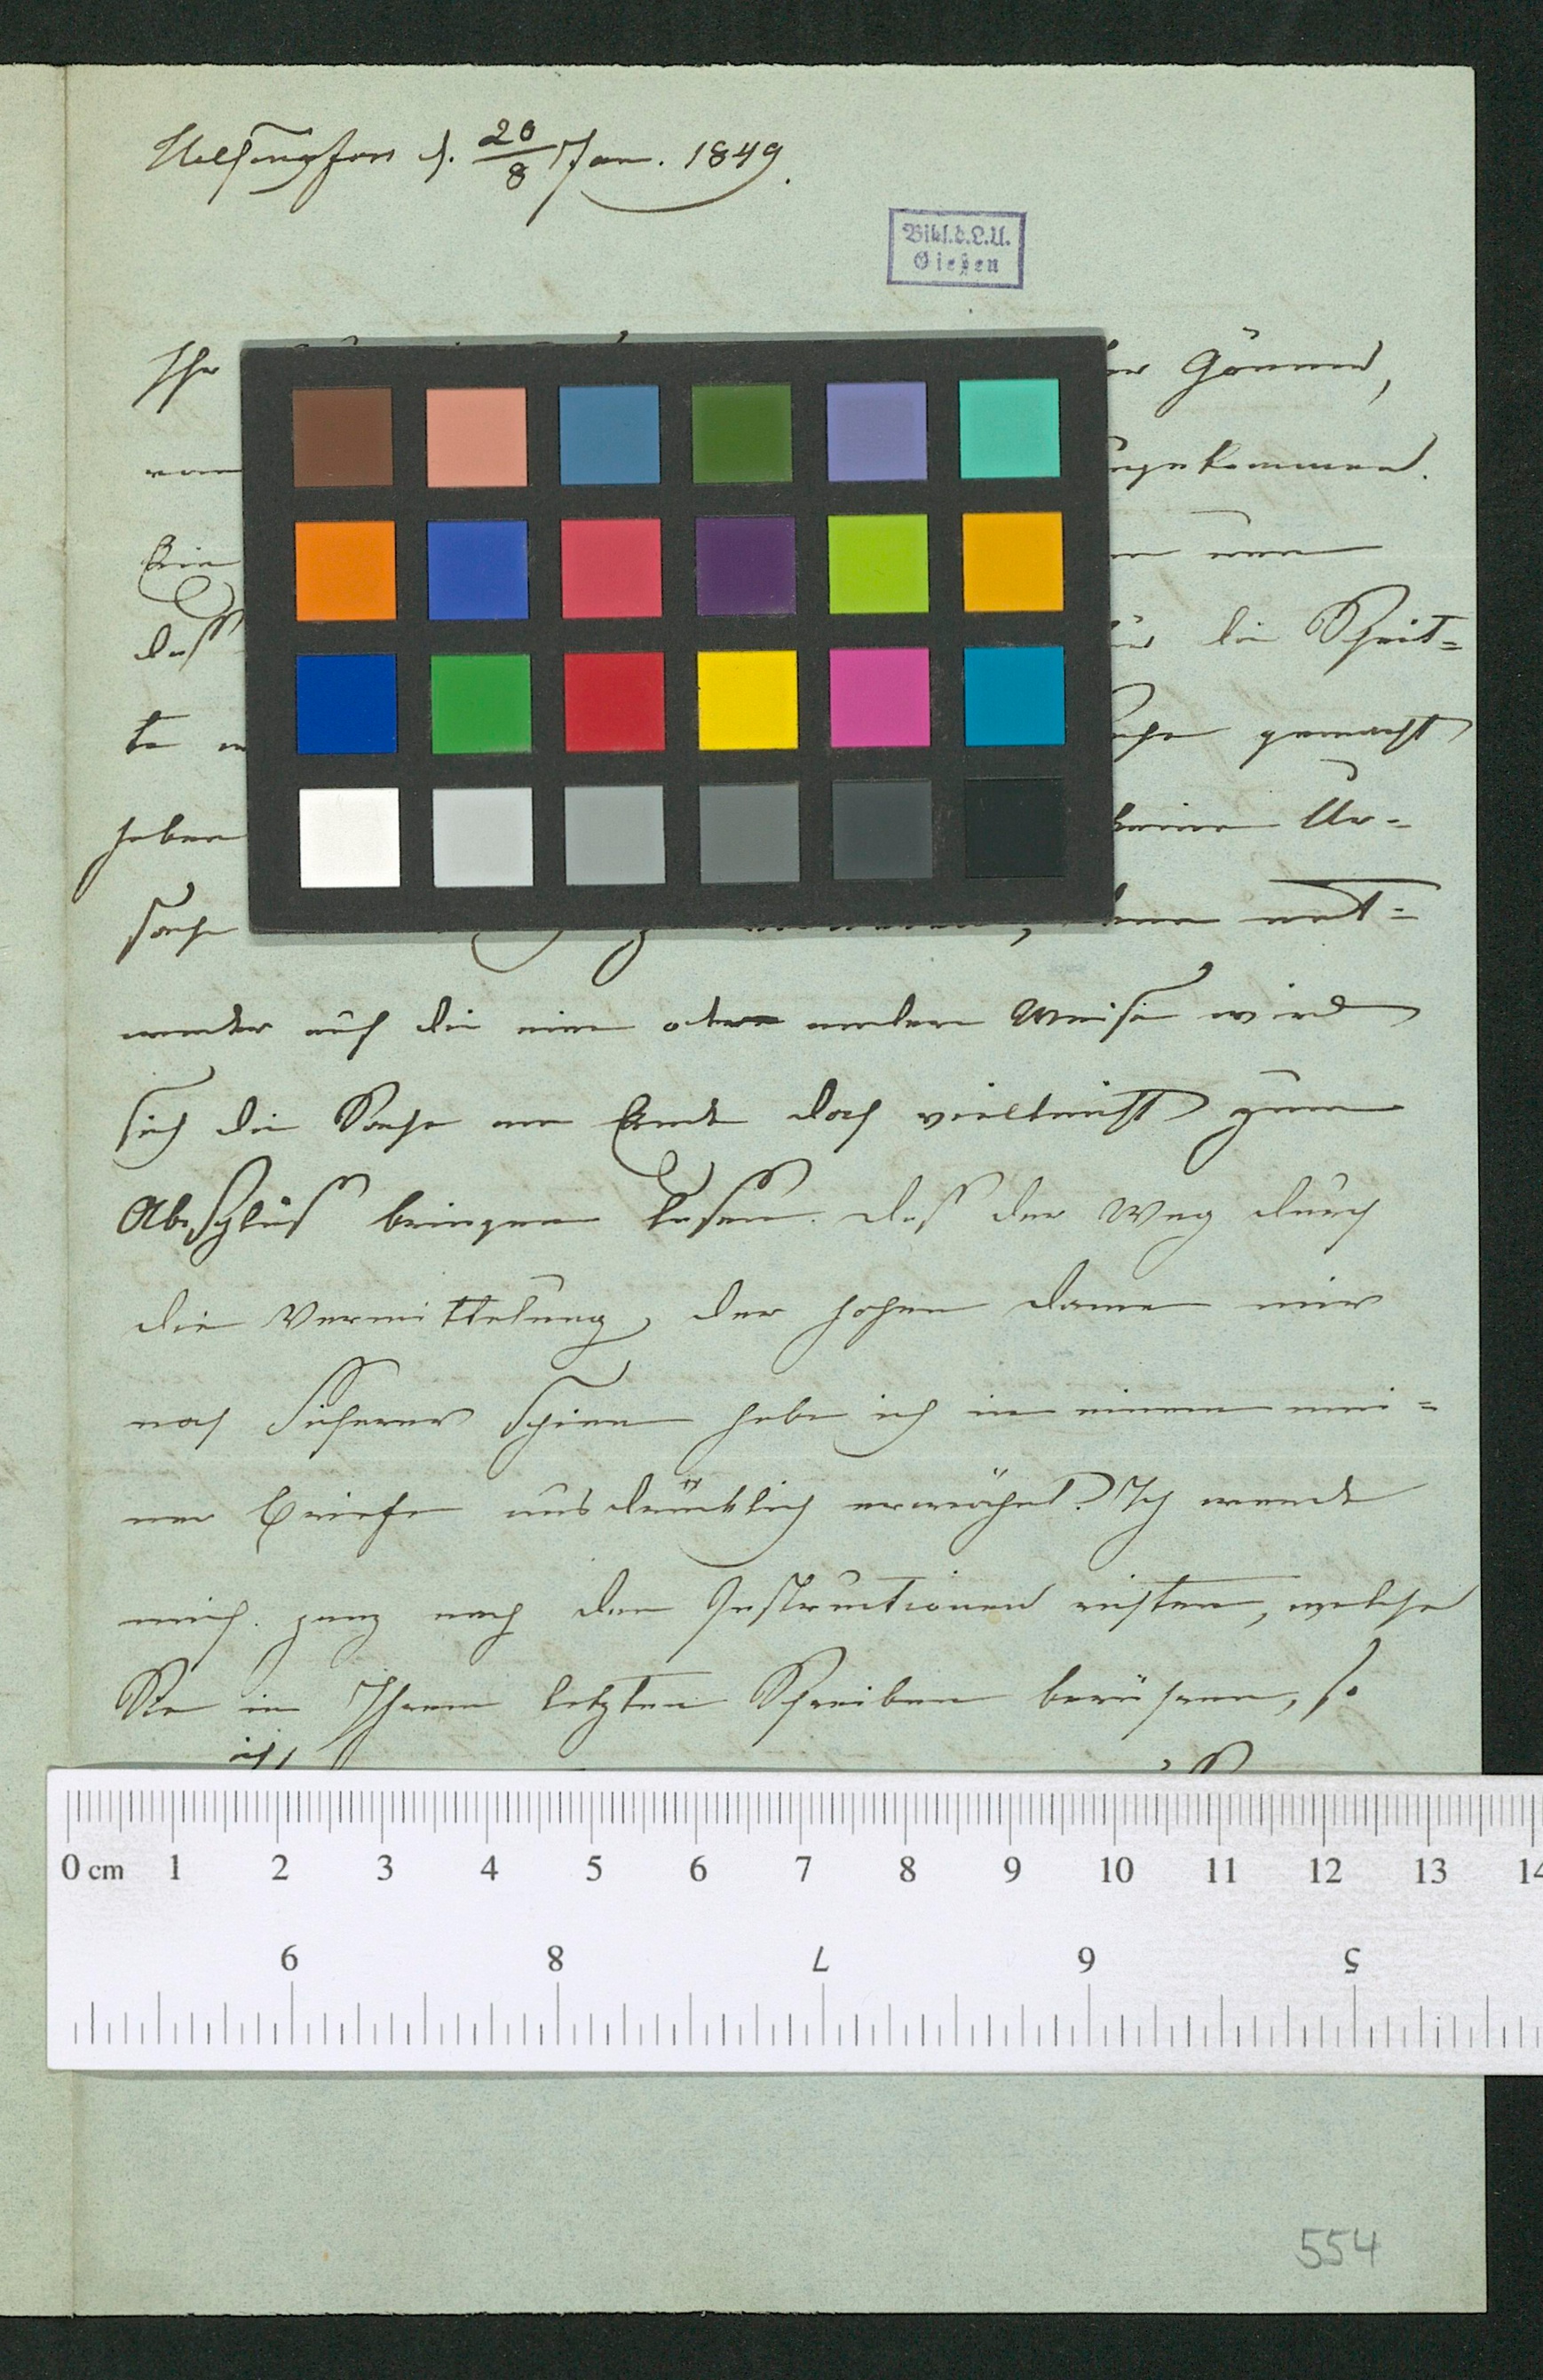 Helsingfors d. 20/8 Jan. 1849.
Bibl.d.L.U.
Gießen
Ihr Gönner,
kommen.
Ein nun
daß die Schrit=
te gemacht
haben keine Ur-
sache , denn ent=
weder auf die eine oder andere Weise wird
sich die Sache am Ende doch vielleicht zum
Abschluß bringen lassen. Daß der Weg durch
die Vermittelung der hohen Dame mir
noch sicherer schien habe ich in einem mei=
ner Briefe ausdrücklich erwähnt. Ich werde
mich ganz nach den Instructionen richten, welche
Sie in Ihrem letzten Schreiben berühren, so
0 cm 1 2 3 4 5 6 7 8 9 10 11 12 13 14
9 8 7 6 5
554